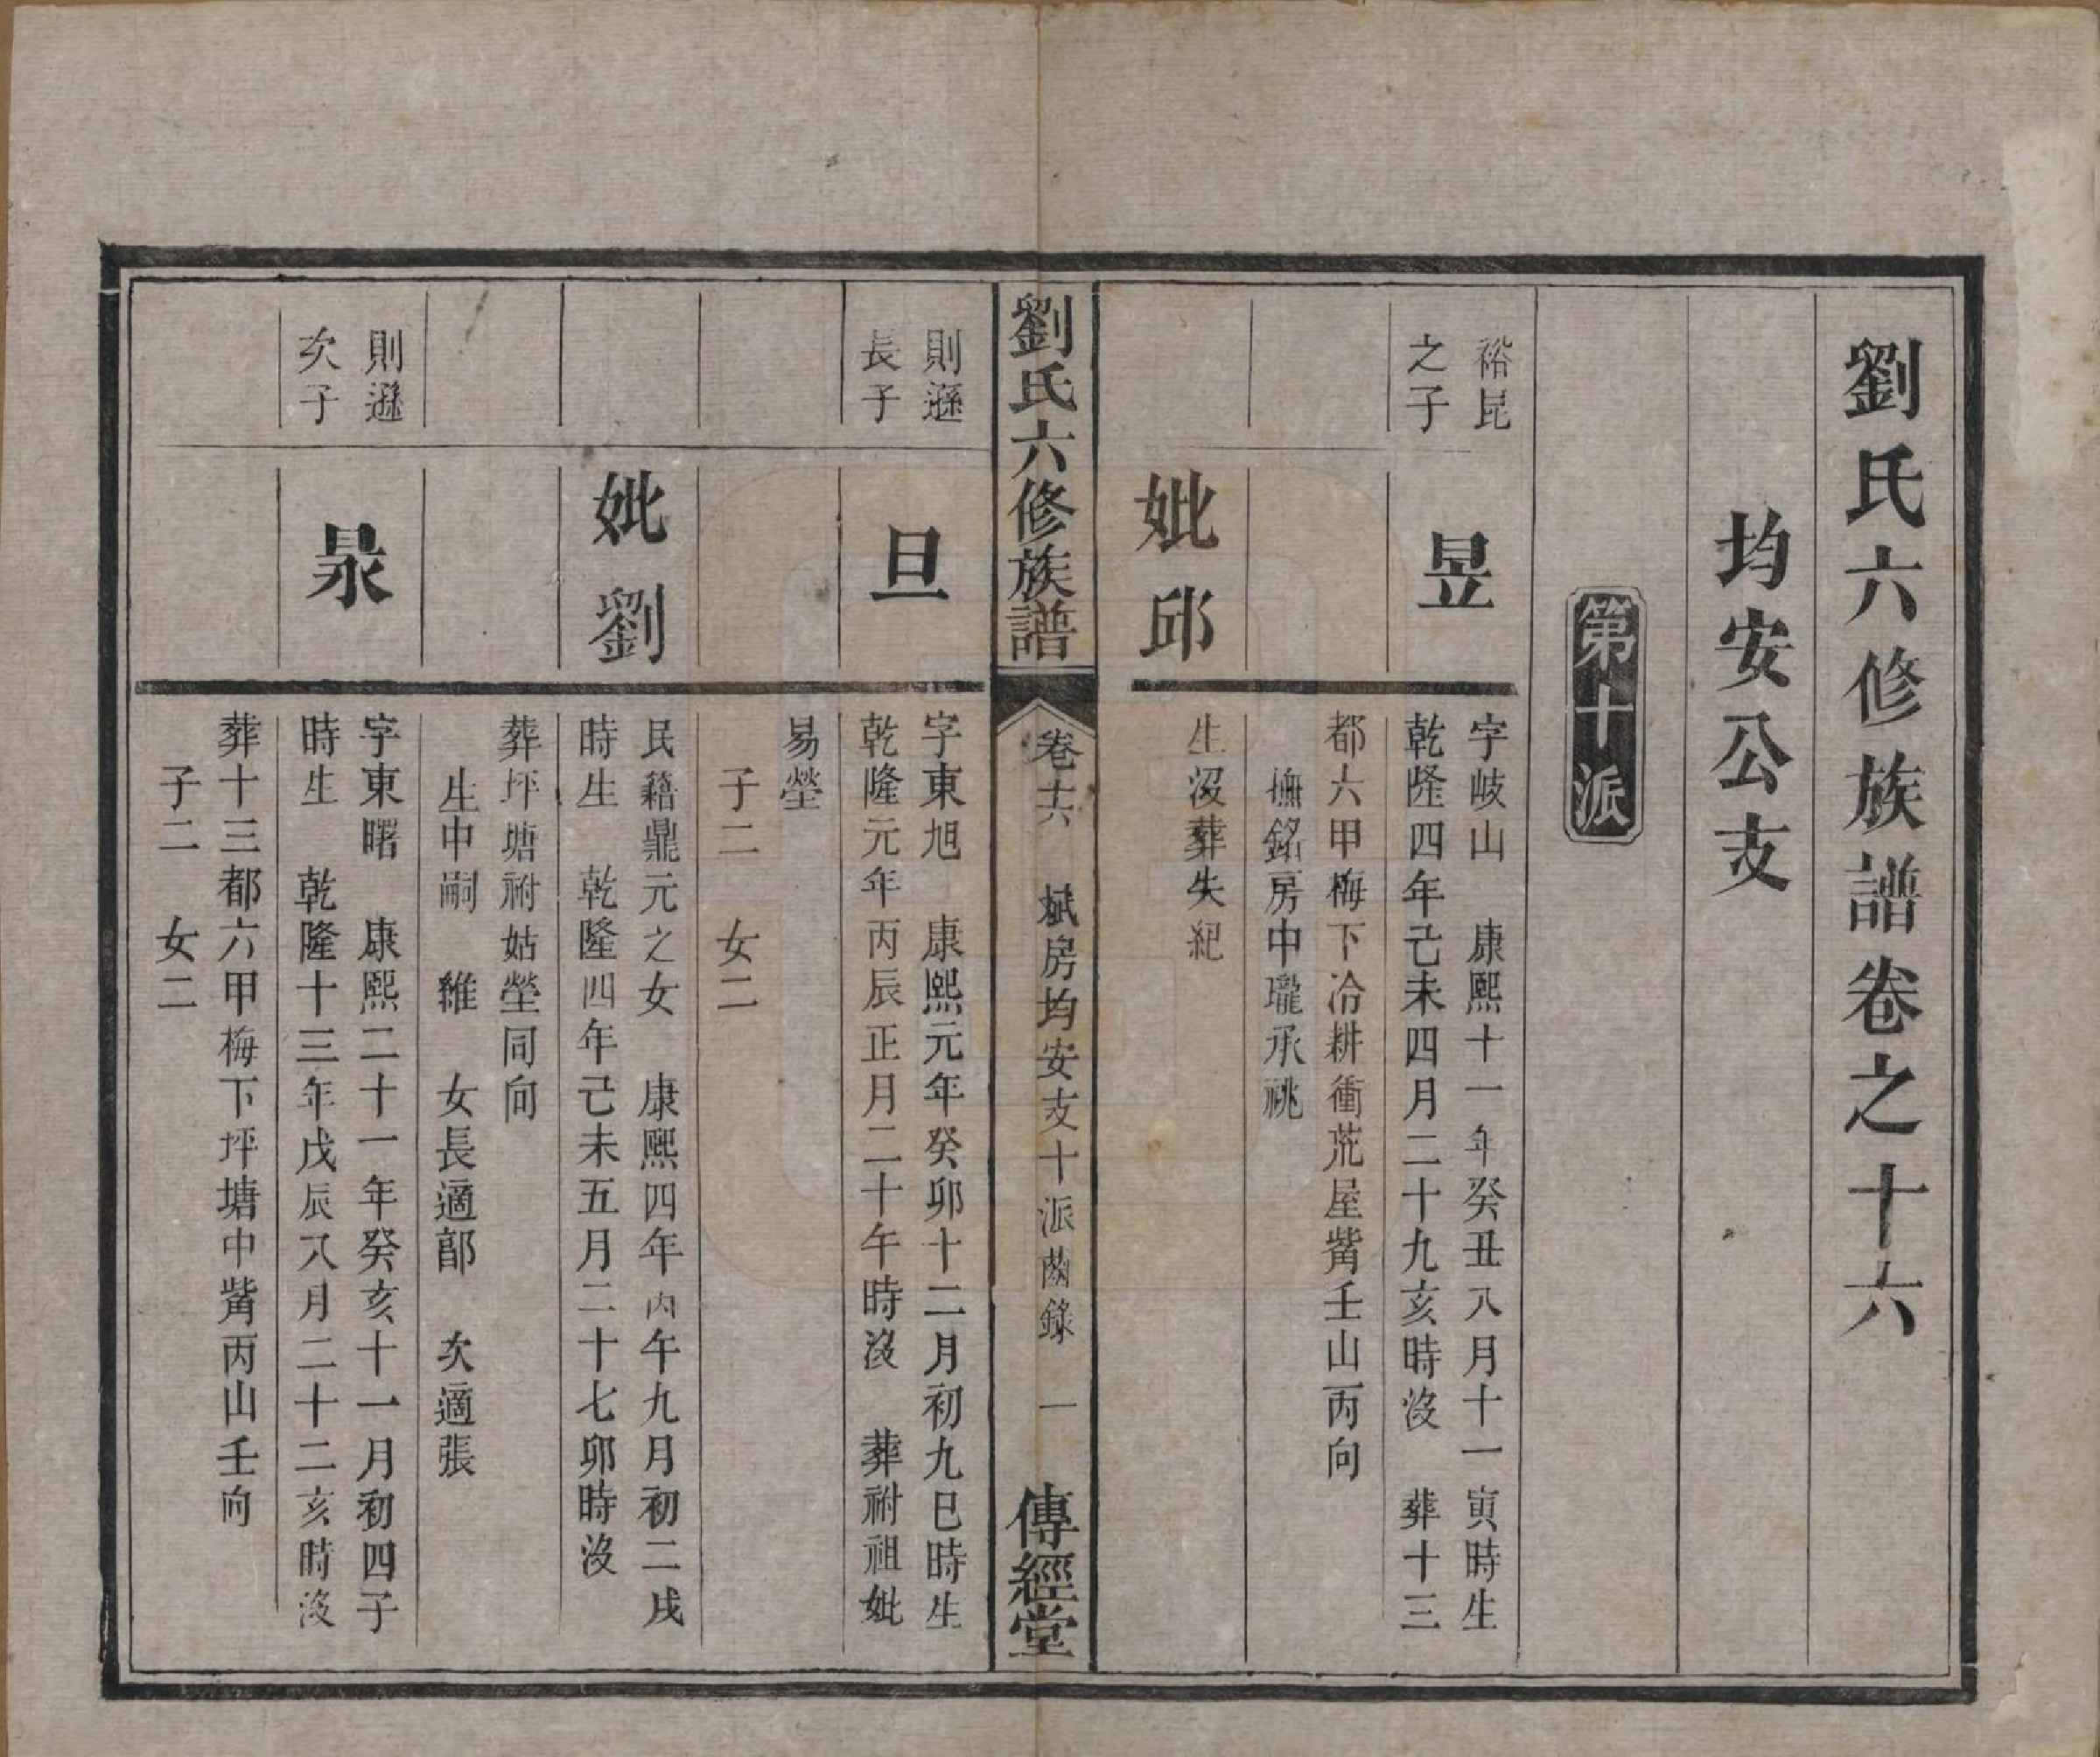 劉氏六修族譜卷之十六
均安公支
第十派
裕昆
之子
昱
字岐山　康熙十一年癸丑八月十一寅時生
乾隆四年己未四月二十九亥時沒　葬十三
都六甲梅下冾耕衝荒屋觜壬山丙向
撫銘房中瓏承祧
妣邱
生沒葬失紀
劉氏六修族譜
卷十六　斌房均安支十派齒錄　一
傳經堂
則遜
長子
旦
字東旭　康熙元年癸卯十二月初九巳時生
乾隆元年丙辰正月二十午時沒　葬祔祖妣
易塋
子二　女二
妣劉
民籍鼎元之女　康熙四年丙午九月初二戌
時生　乾隆四年己未五月二十七卯時沒
葬坪塘祔姑塋同向
生中嗣　維　女長適鄒　次適張
則遜
次子
字東曙　康熙二十一年癸亥十一月初四子
時生　乾隆十三年戊辰八月二十二亥時沒
葬十三都六甲梅下坪塘中觜丙山壬向
子二　女二